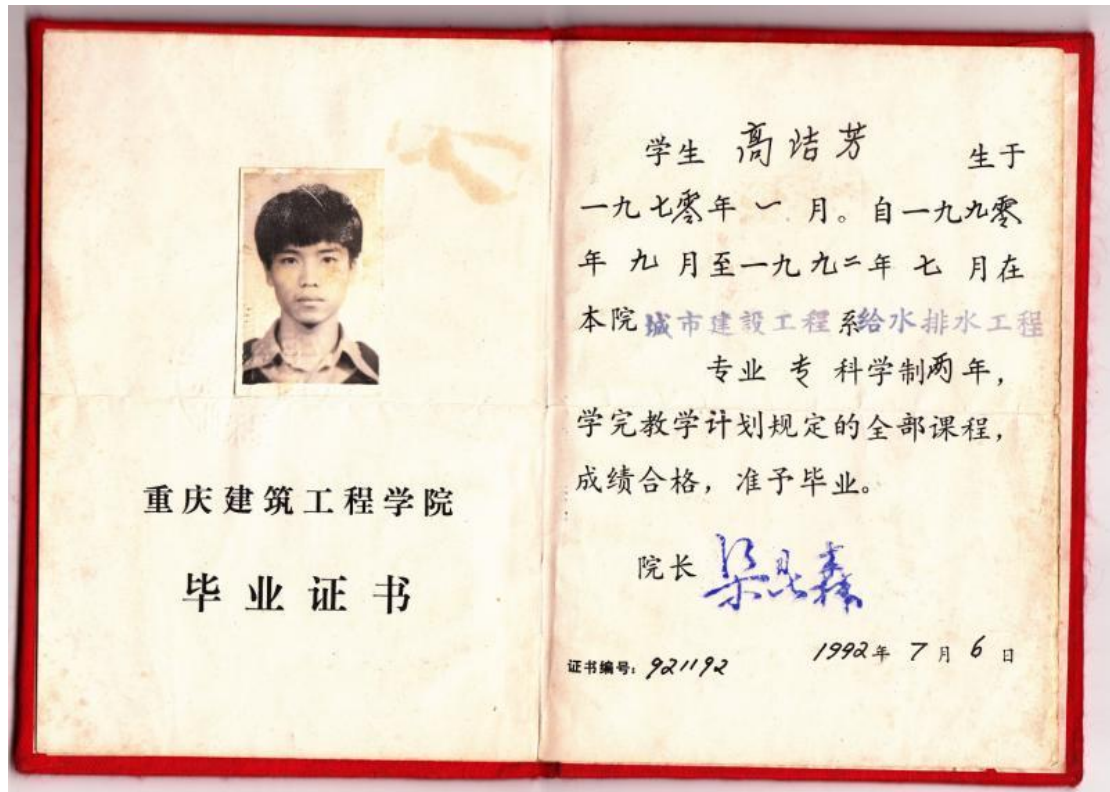 重庆建筑工程学院
毕业证书
学生 高洁芳 生于
一九七零年一月。自一九九零
年九月至一九九二年七月在
本院城市建設工程系给水排水工程
专业 专 科学制两年，
学完教学计划规定的全部课程，
成绩合格，准予毕业。
院长
1992年7月6日
证书编号：921192